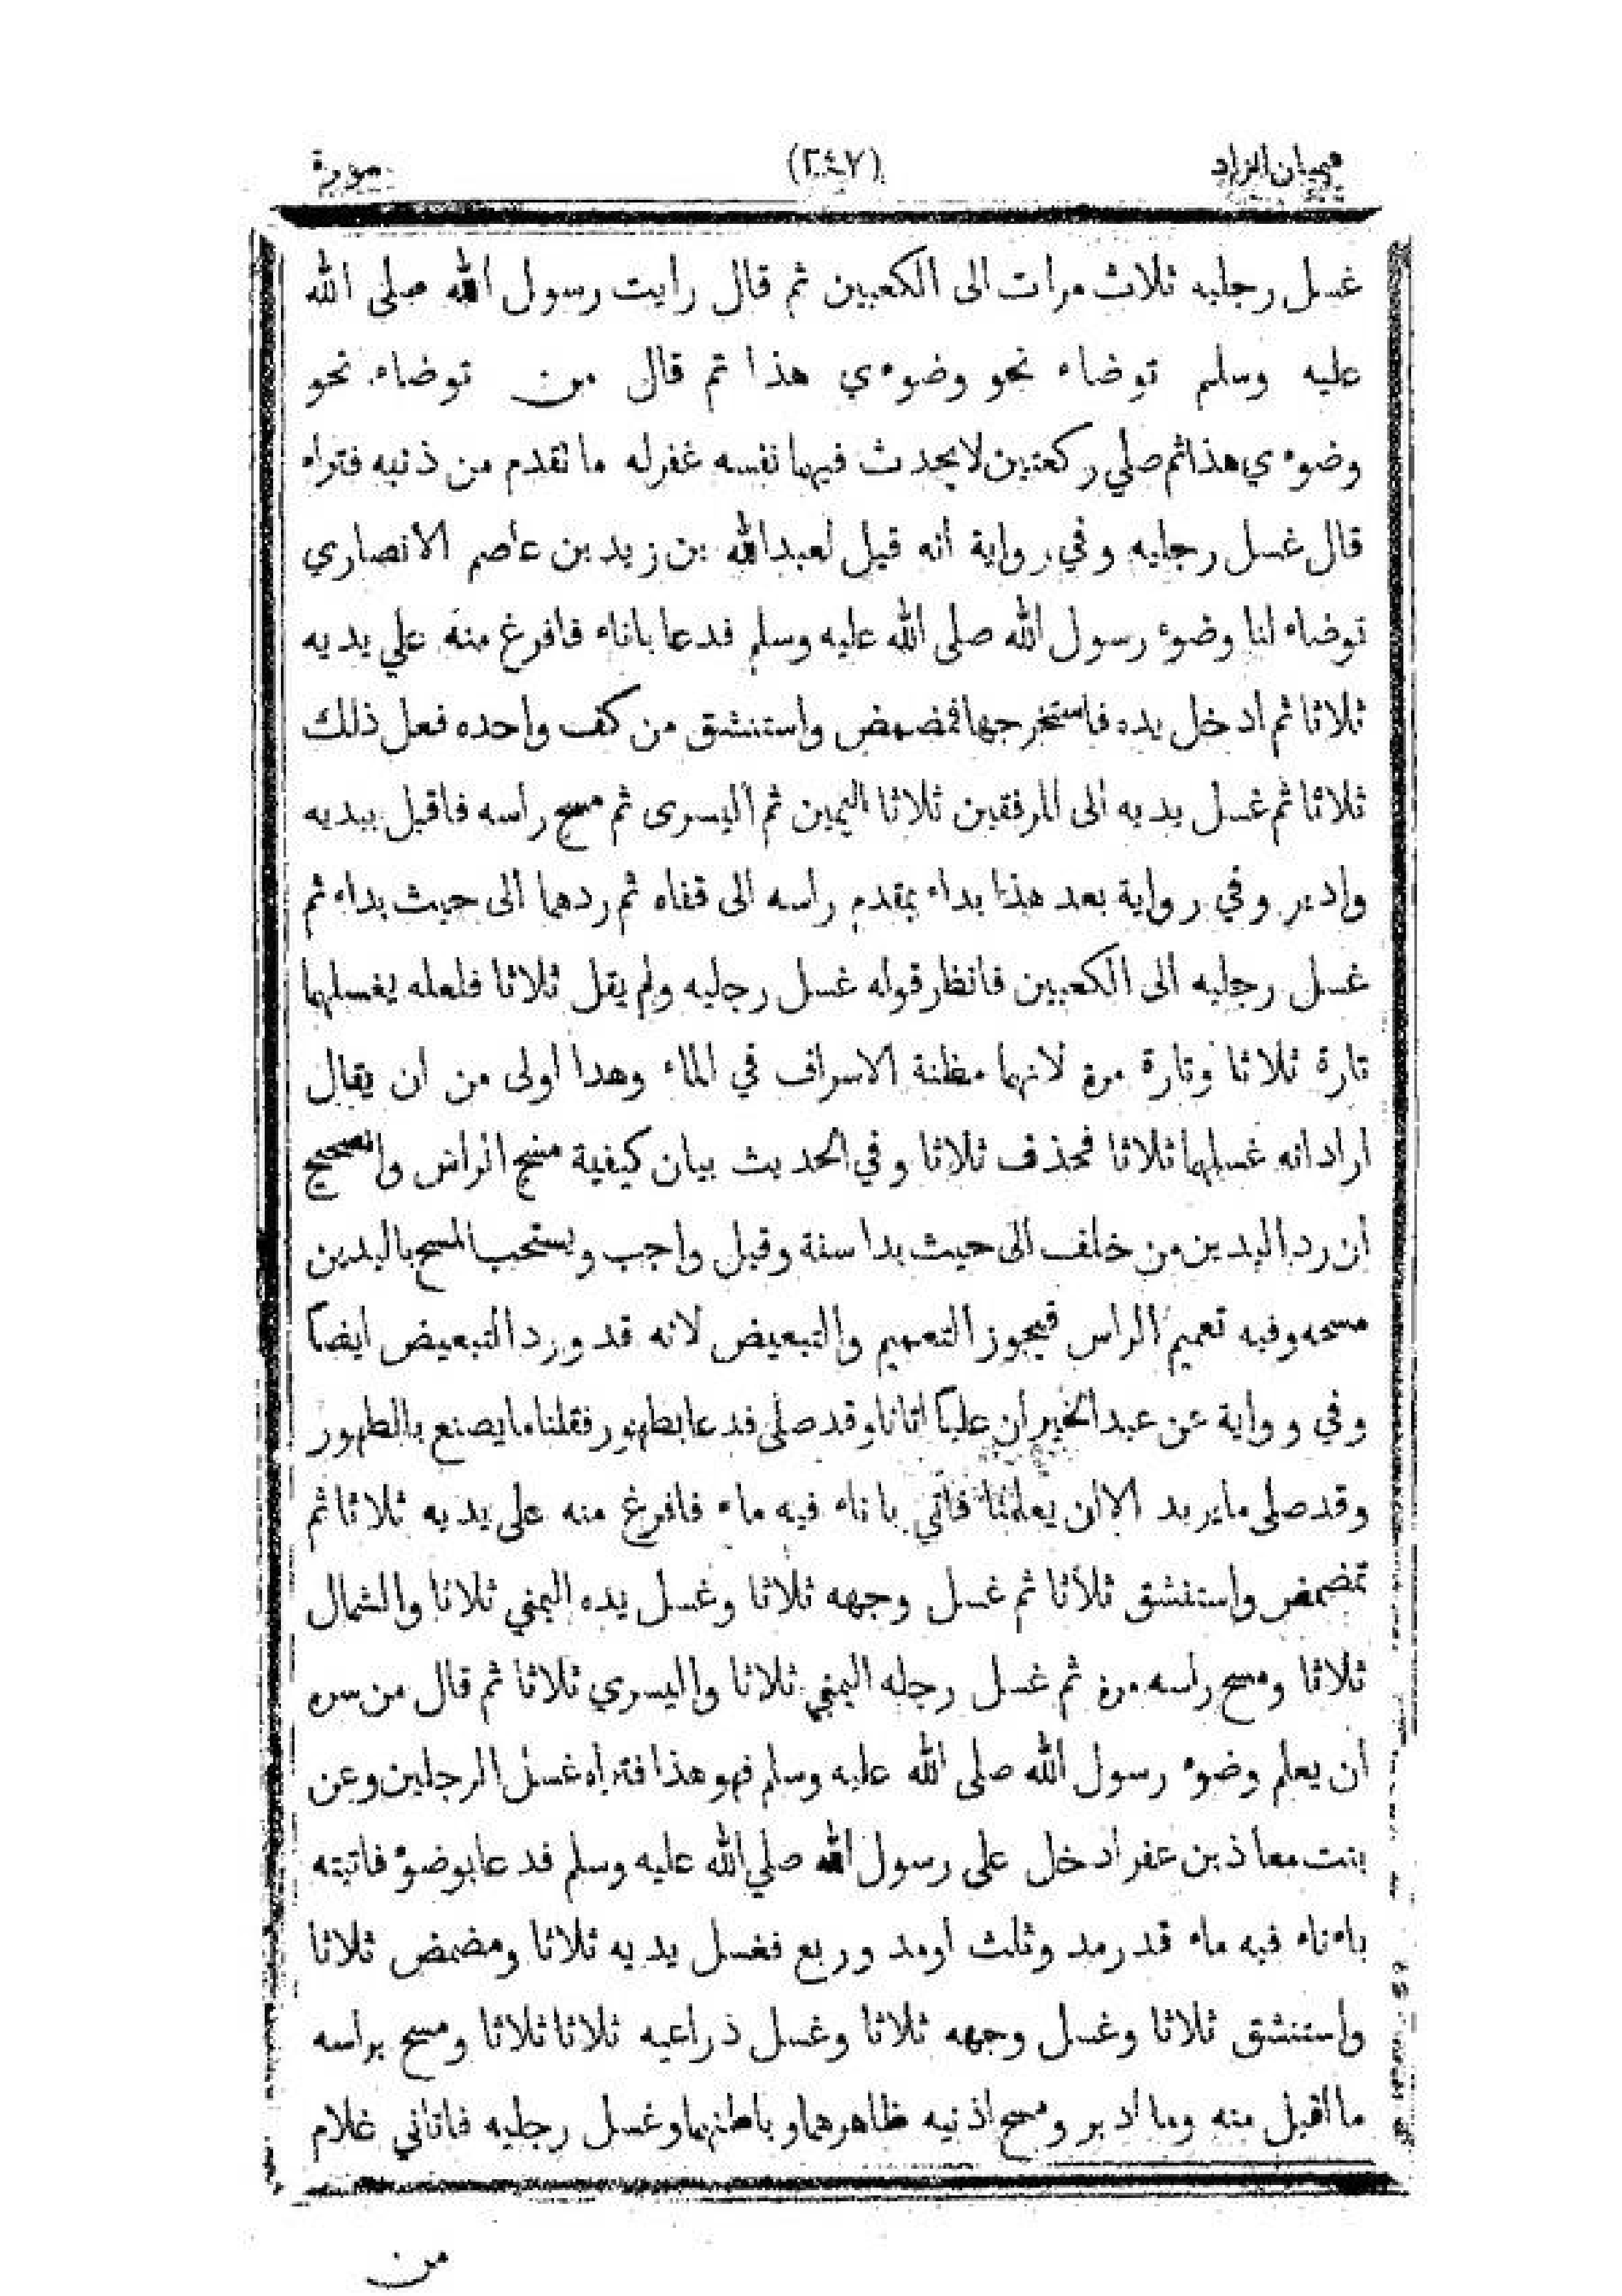 هميان الزاد (٢٤٧) سورة
غسل رجليه ثلاث مرات الى الكعبين ثم قال رايت رسول الله صلى الله
عليه وسلم توضاء نحو وضوءي هذا ثم قال من توضاء نحو
وضوءي هذا ثم صلي ركعتين لا يحدث فيهما نفسه غفرله ما تقدم من ذنبه فتراه
قال غسل رجليه وفي رواية أنه قيل لعبدالله بن زيد بن عاصم الانصاري
توضاء لنا وضوء رسول الله صلى الله عليه وسلم فدعا باناء فافرغ منه علي يديه
ثلاثا ثم ادخل يده فاستخرجها فمضمض واستنشق من كف واحده فعل ذلك
ثلاثا ثم غسل يديه الى المرفقين ثلاثا اليمين ثم اليسرى ثم مسح راسه فاقبل بيديه
وادبر وفي رواية بعد هذا بداء بمقدم راسه الى قفاه ثم ردهما الى حيث بداء ثم
غسل رجليه الى الكعبين فانظر قوله غسل رجليه ولم يقل ثلاثا فلعله يغسلهما
تارة ثلاثا وتارة مرة لانهما مظنة الاسراف في الماء وهدا اولى من ان يقال
اراد انه غسلهما ثلاثا فحذف ثلاثا وفي الحديث بيان كيفية مسح الراس والصحيح
ان رد اليدين من خلف الى حيث بدا سنة وقيل واجب ويستحب المسح باليدين
مسحه وفيه تعميم الراس فيجوز التعميم والتبعيض لانه قد ورد التبعيض ايضا
وفي وواية عن عبد الخير ان عليا اتانا وقد صلى فدعا بطهور فقلنا ما يصنع بالطهور
وقد صلى ما يريد الا ان يعلمنا فأتي باناء فيه ماء فافرغ منه على يديه ثلاثا ثم
تمضمض واستنشق ثلاثا ثم غسل وجهه ثلاثا وغسل يده اليمني ثلاثا والشمال
ثلاثا ومسح راسه مرة ثم غسل رجله اليمني ثلاثا واليسري ثلاثا ثم قال من سره
أن يعلم وضوء رسول الله صلى الله عليه وسلم فهو هذا فتراه غسل الرجلين وعن
بنت معاذ بن عفر ادخل على رسول الله صلي الله عليه وسلم فدعا بوضوء فاتيته
باءناء فيه ماء قدر مد وثلث اومد وربع فغسل يديه ثلاثا ومضمض ثلاثا
واستنشق ثلاثا وغسل وجهه ثلاثا وغسل ذراعيه ثلاثا ثلاثا ومسح براسه
ما أقبل منه وما ادبر ومسح اذنيه ظاهرهما وباطنهما وغسل رجليه فاتاني غلام
من